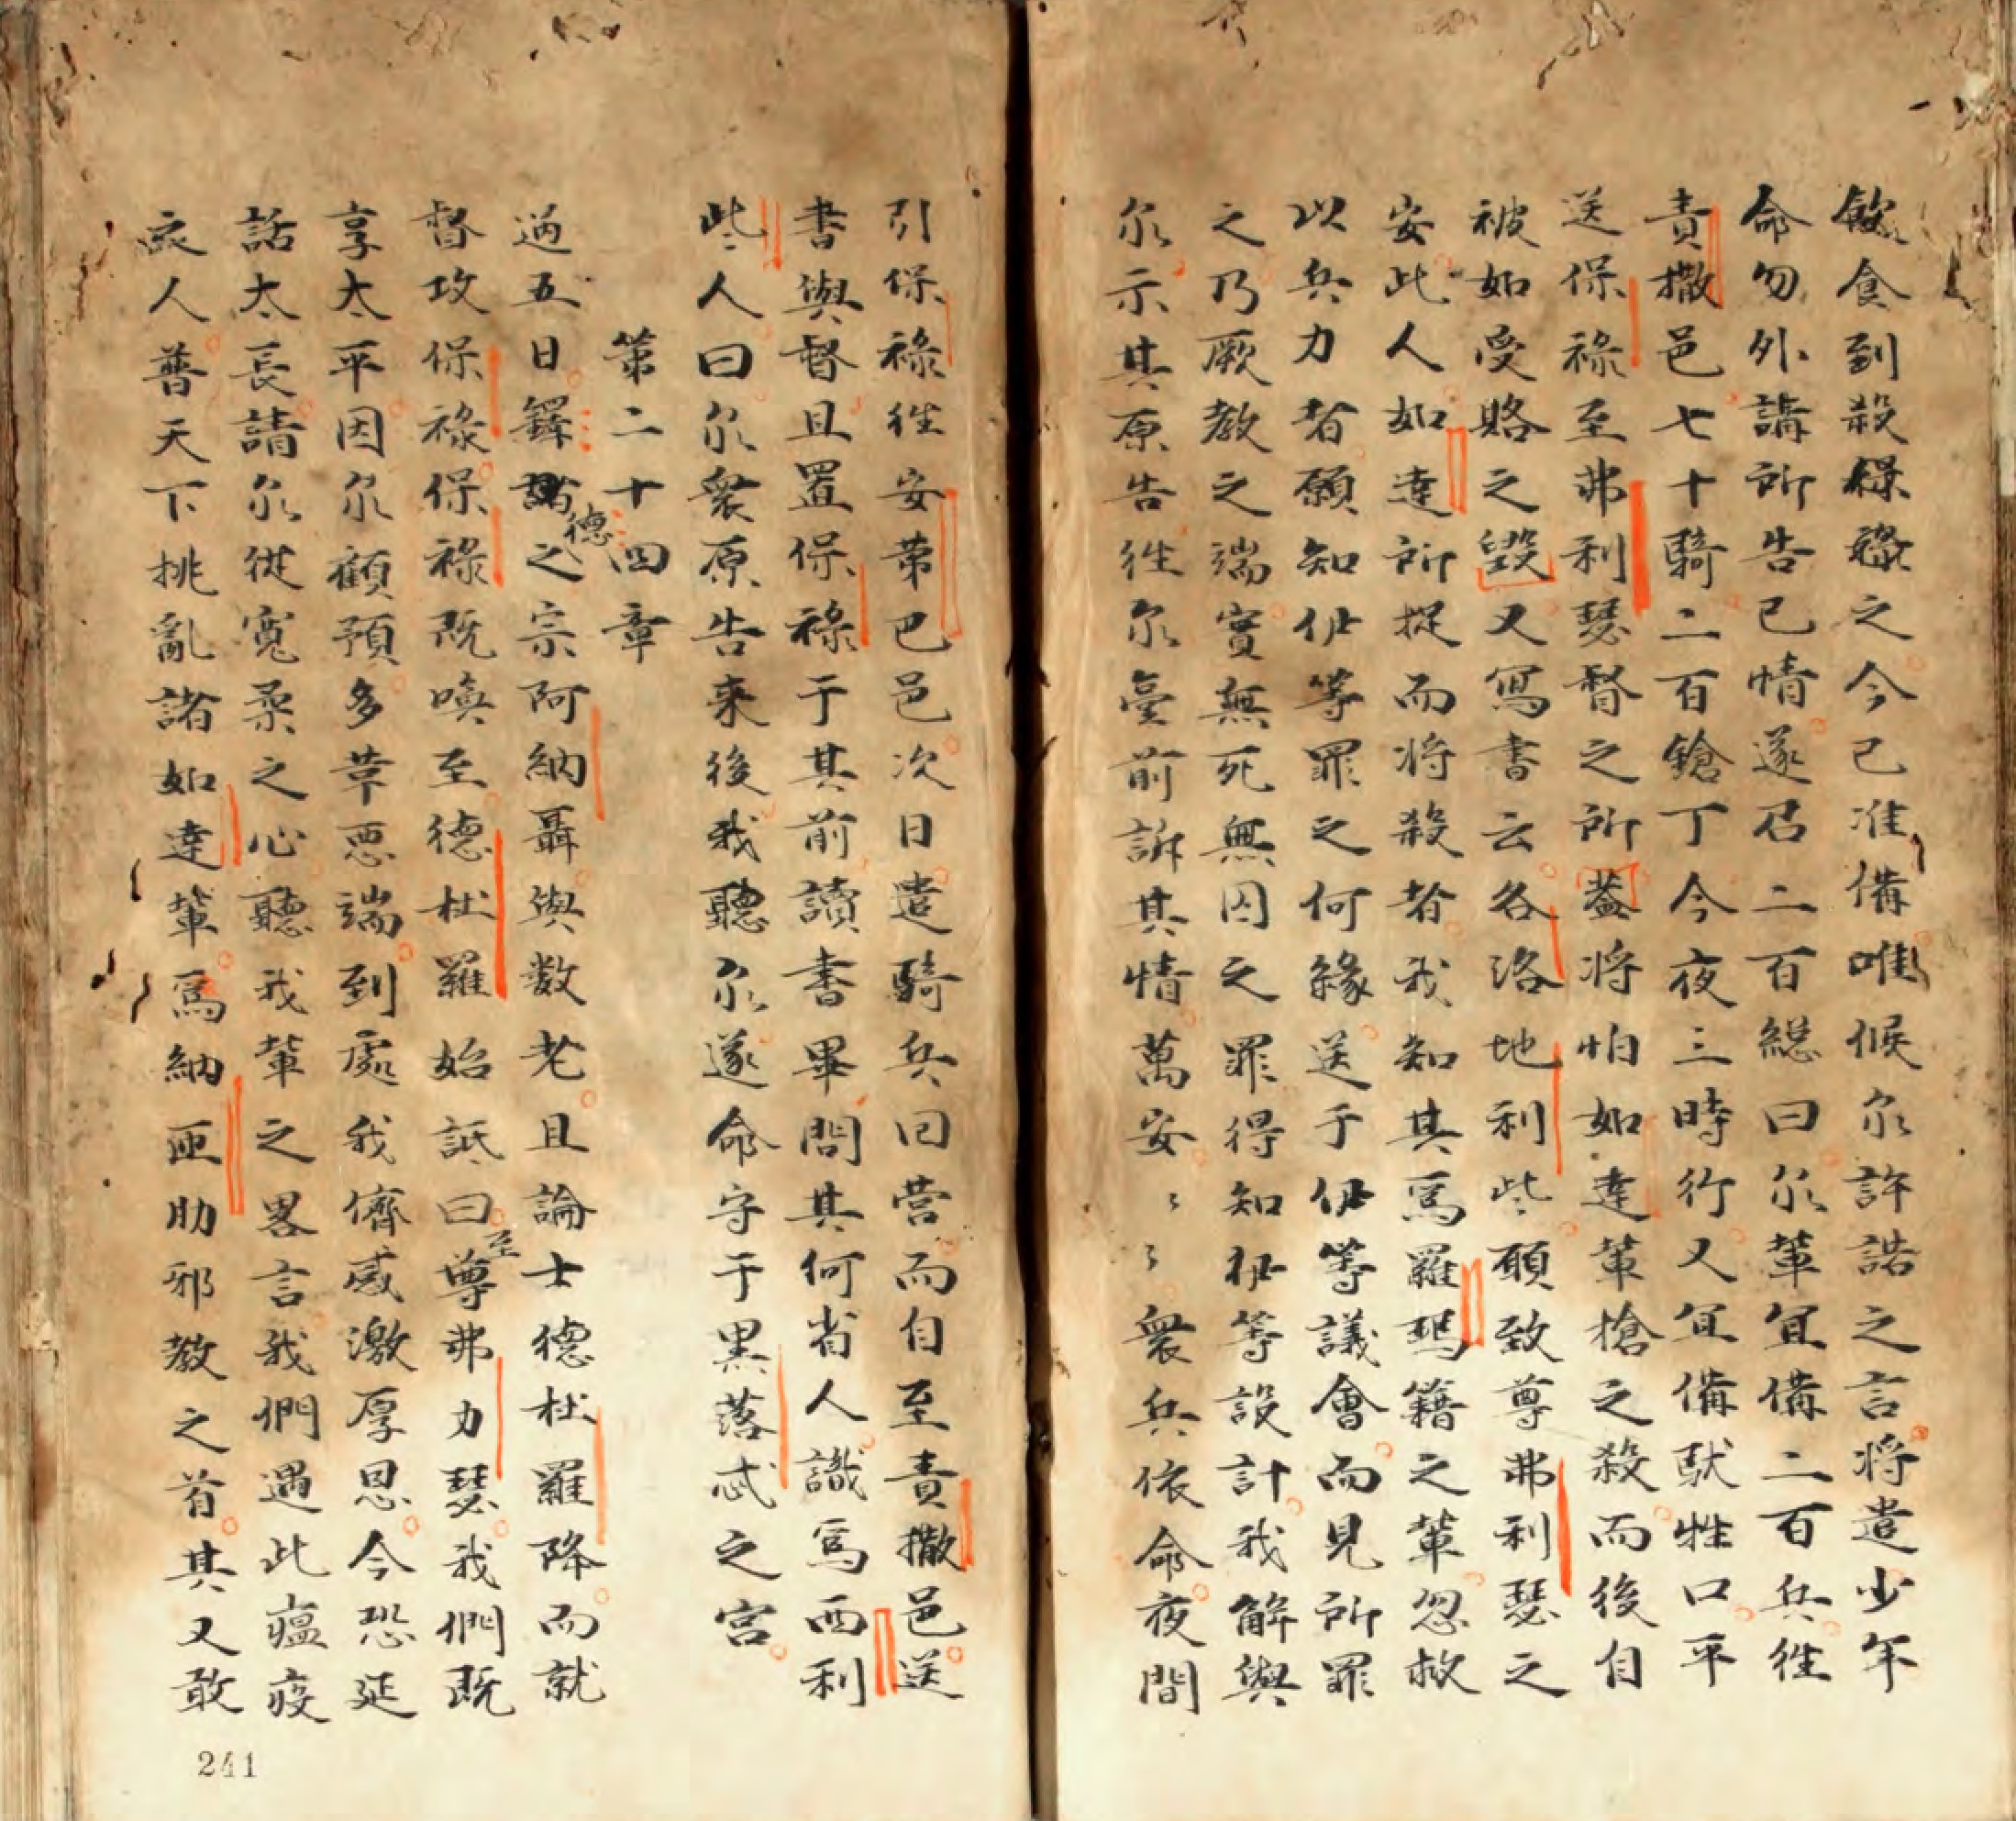 飲食到殺保祿之今已准備唯候尔許諾之言将遣少年
命勿外講所告已情遂召二百総曰尔輩宜備二百兵徃
責撒邑七十騎二百鎗丁今夜三時行又宜備馱牲口平
送保祿至弗利瑟督之所蓋将怕如達輩搶之殺而後自
被如受賂之毀又寫書云各洛地利些頋致尊弗利瑟之
安此人如達所捉而将殺者我知其為羅瑪籍之輩忽救
以兵力者願知伊等罪之何緣送于伊等議會而見所罪
之乃厥教之端實無死無囚之罪得知伊等設計我解與
尔示其原告徃尔臺前訴其情萬安〻〻衆兵依命夜間
引保祿徃安第巴邑次日遣騎兵囘营而自至責撒邑送
書與督且置保祿于其前讀書畢問其何省人識為西利
些人曰尔衆原告来後我聽尔遂命守于黒落忒之宫
第二十四章
過五日鐸德之宗阿納聶與数老且論士德杜羅降而就
督攻保祿保祿既喚至德杜羅始詆曰至尊弗力瑟我們既
享太平因尔顧預多革惡端到處我儕感激厚恩今恐延
話太長請尔從寬柔之心聽我輩之畧言我們遇此瘟疫
之人普天下挑亂諸如達輩為納匝肋邪教之首其又敢
241